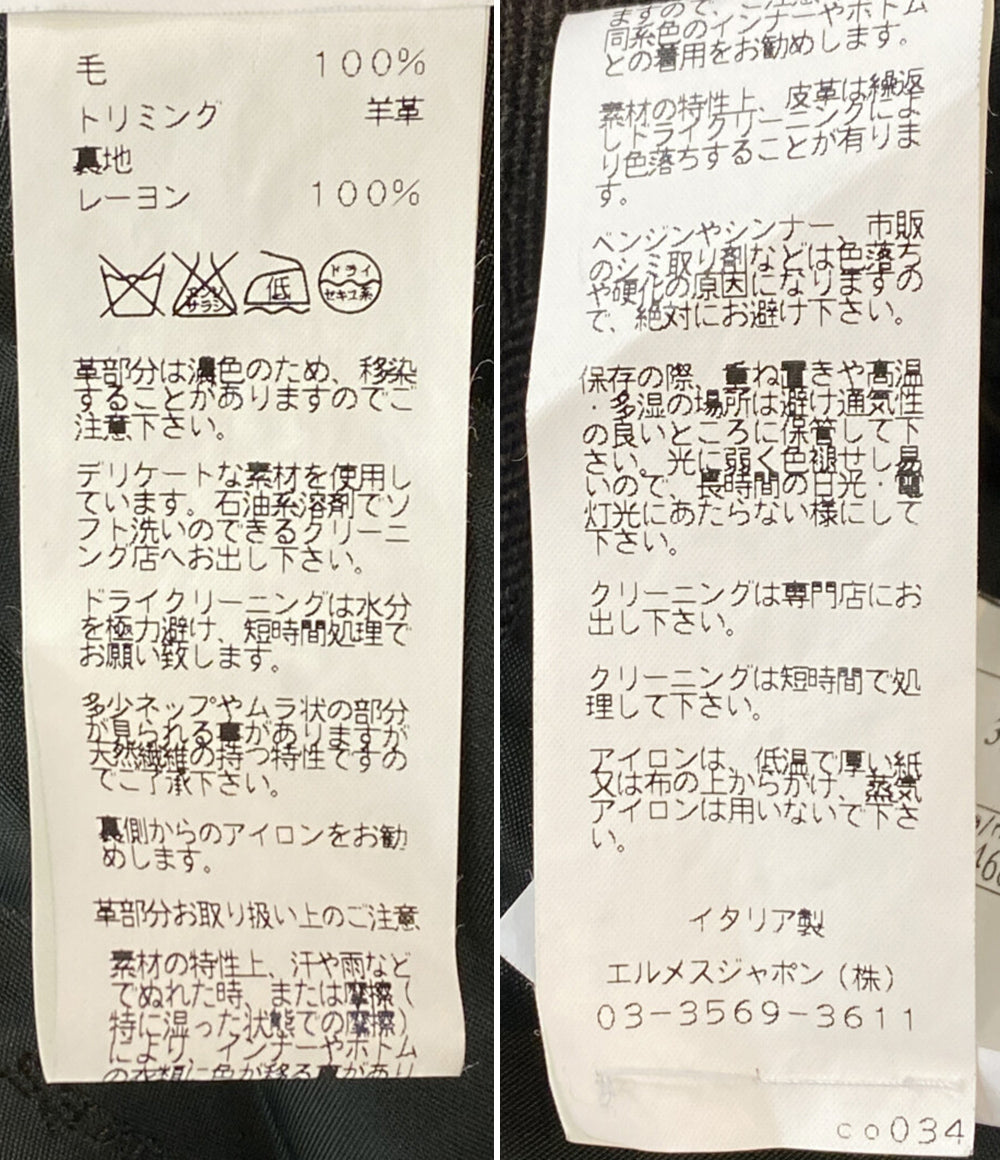 毛 100%
トリミング 羊革
裏地
レーヨン 100%
エンソ
サラシ
低
ドライ
セキユ系
革部分は濃色のため、移染
することがありますのでご
注意下さい。
デリケートな素材を使用し
ています。石油系溶剤でソ
フト洗いのできるクリーニ
ング店へお出し下さい。
ドライクリーニングは水分
を極力避け、短時間処理で
お願い致します。
多少ネップやムラ状の部分
が見られる事がありますが
天然繊維の持つ特性ですの
でご了承下さい。
裏側からのアイロンをお勧
めします。
革部分お取り扱い上のご注意
素材の特性上、汗や雨など
でぬれた時、または摩擦(
特に湿った状態での摩擦)
により、インナーやボトム
の衣類に色が移る事があり
ますので、ご注意
同系色のインナーやボトム
との着用をお勧めします。
素材の特性上、皮革は繰返
しドライクリーニングによ
り色落ちすることが有りま
す。
ベンジンやシンナー、市販
のシミ取り剤などは色落ち
や硬化の原因になりますの
で、絶対にお避け下さい。
保存の際、重ね置きや高温
・多湿の場所は避け通気性
の良いところに保管して下
さい。光に弱く色褪せし易
いので、長時間の日光・電
灯光にあたらない様にして
下さい。
クリーニングは専門店にお
出し下さい。
クリーニングは短時間で処
理して下さい。
アイロンは、低温で厚い紙
又は布の上からかけ、蒸気
アイロンは用いないで下さ
い。
イタリア製
エルメスジャポン(株)
03-3569-3611
co034